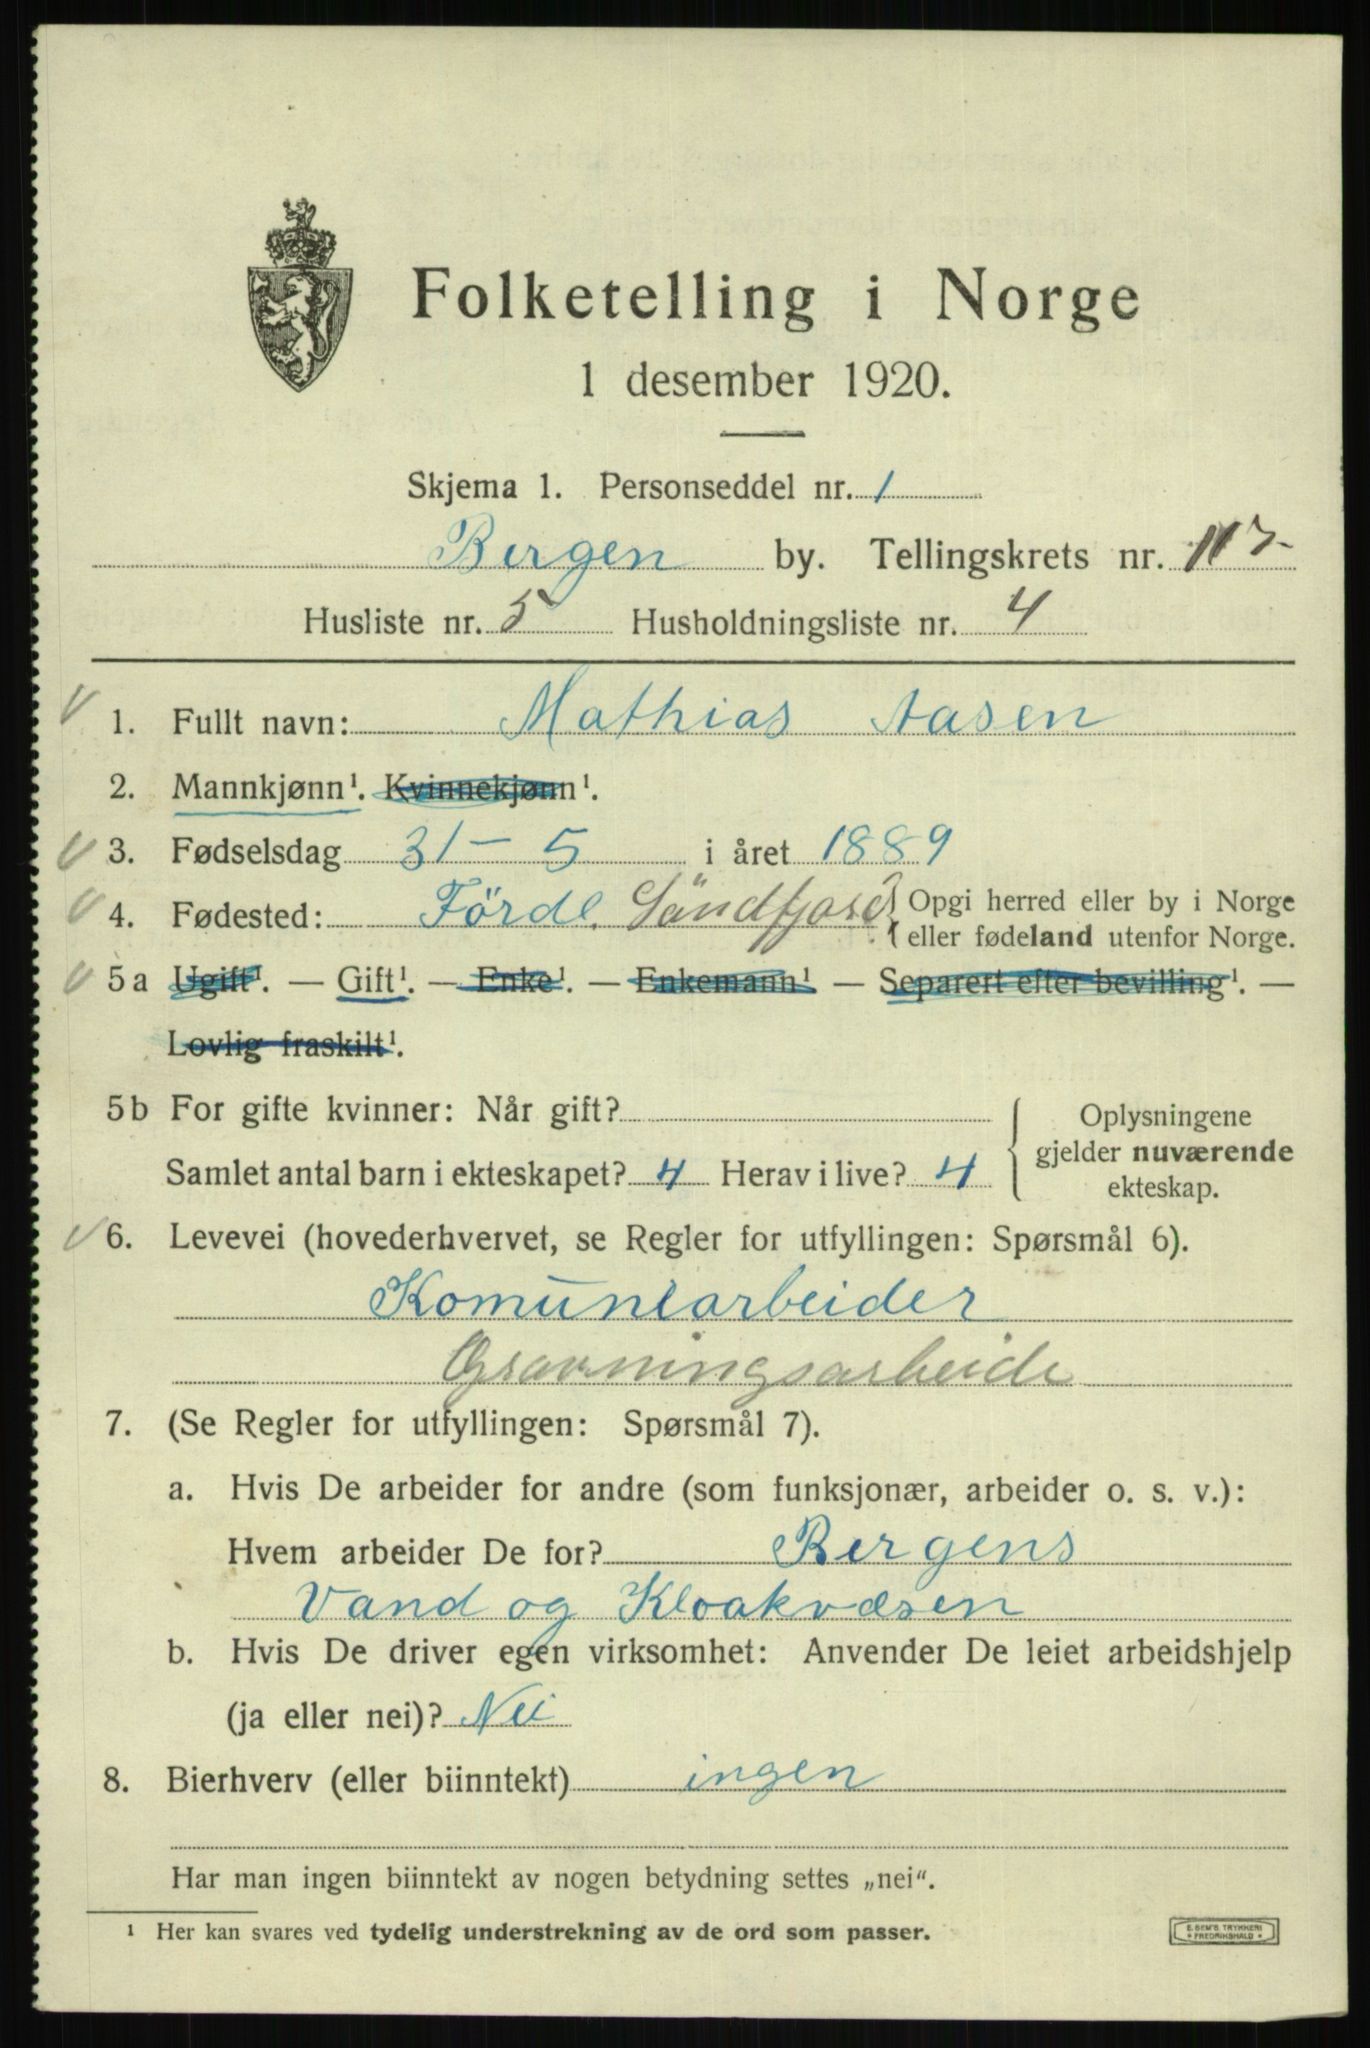 Folketelling i Norge
1 desember 1920.
Skjema 1. Personseddel nr. 1
Bergen by. Tellingskrets nr. 117
Husliste nr. 5 Husholdningsliste nr. 4
1. Fullt navn: Mathias Aasen
2. Mannkjønn¹. Kvinnekjønn¹.
3. Fødselsdag 31 - 5 i året 1889
4. Fødested: Förde. Söndfjord { Opgi herred eller by i Norge
eller fødeland utenfor Norge.
5a Ugift¹. — Gift¹. — Enke¹. — Enkemann¹ — Separert efter bevilling¹. —
Lovlig fraskilt¹.
5b For gifte kvinner: Når gift?
Samlet antal barn i ekteskapet? 4 Herav i live? 4
Oplysningene
gjelder nuværende
ekteskap.
6. Levevei (hovederhvervet, se Regler for utfyllingen: Spørsmål 6).
Komunearbeider
Gravningsarbeide
7. (Se Regler for utfyllingen: Spørsmål 7).
a. Hvis De arbeider for andre (som funksjonær, arbeider o. s. v.):
Hvem arbeider De for? Bergens
Vand og Kloakvæsen
b. Hvis De driver egen virksomhet: Anvender De leiet arbeidshjelp
(ja eller nei)? Nei
8. Bierhverv (eller biinntekt) ingen
Har man ingen biinntekt av nogen betydning settes „nei".
¹ Her kan svares ved tydelig understrekning av de ord som passer.
E. SEM'S TRYKKERI
* FREDRIKSHALD *